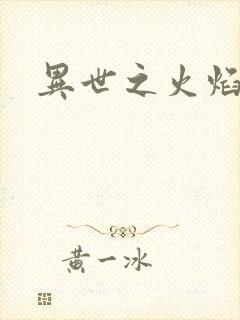 異世之火焰
黄一冰